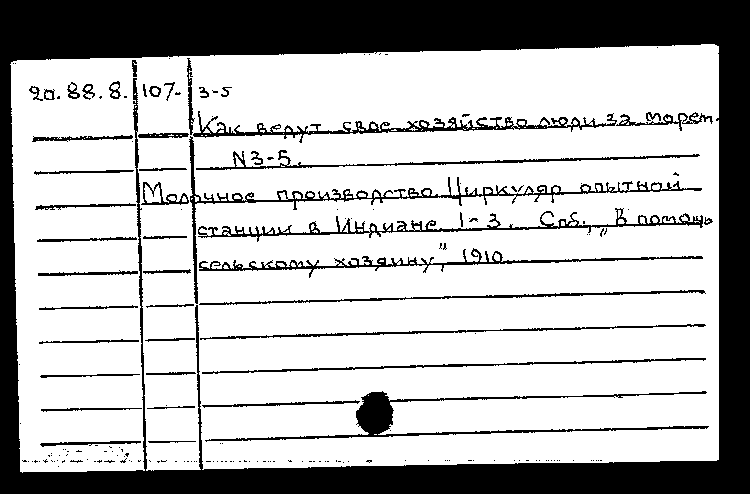 20.88.8. 107- 3-5
Как ведут свое хозяйство люди за морем.
N3-5.
Молочное производство. Циркуляр опытной
станции в Индиане 1-3. Спб., „В помощь
сельскому хозяину", 1910.